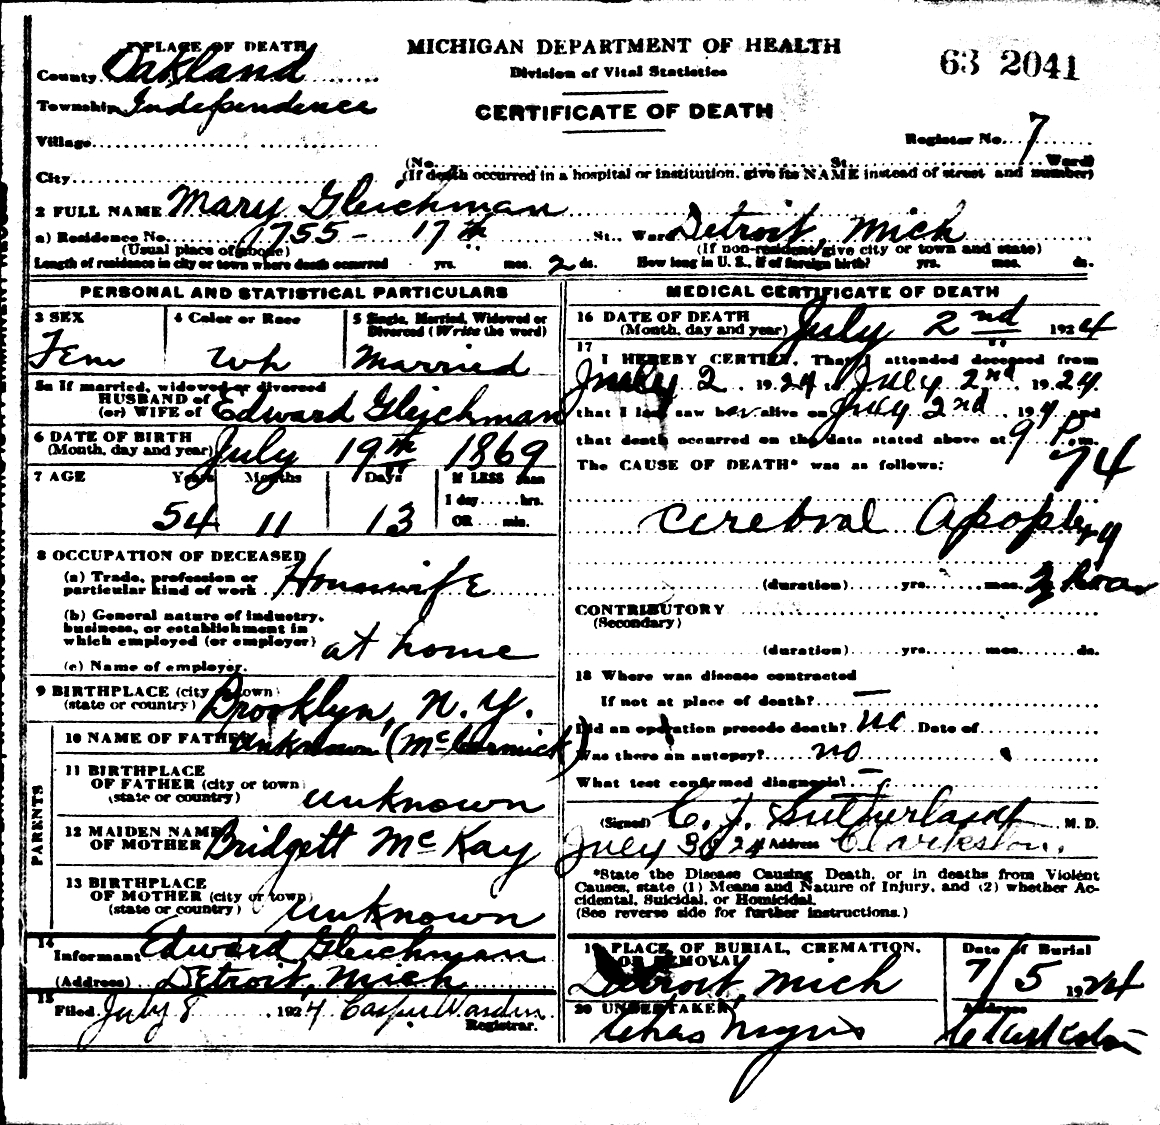 1 PLACE OF DEATH
County Oakland
Township Independence
Village
City
MICHIGAN DEPARTMENT OF HEALTH
Division of Vital Statistics
CERTIFICATE OF DEATH
63 2041
Register No. 7
(No. St. Ward)
(If death occurred in a hospital or institution, give its NAME instead of street and number)
2 FULL NAME Mary Gleichman
a) Residence No. 1755 - 17th St., Ward Detroit, Mich
(Usual place of abode) (If non-resident give city or town and state)
Length of residence in city or town where death occurred yrs. mos. 2 ds. How long in U. S., if of foreign birth? yrs. mos. ds.
PERSONAL AND STATISTICAL PARTICULARS
3 SEX
Fem
4 Color or Race
Wh
5 Single, Married, Widowed or
Divorced (Write the word)
Married
5a If married, widowed or divorced
HUSBAND of
(or) WIFE of Edward Gleichman
6 DATE OF BIRTH
(Month, day and year) July 19th 1869
7 AGE Years Months Days If LESS than
1 day hrs.
OR min.
54 11 13
8 OCCUPATION OF DECEASED
(a) Trade, profession or
particular kind of work Housewife
(b) General nature of industry,
business, or establishment in
which employed (or employer) at home
(c) Name of employer.
9 BIRTHPLACE (city or town)
(state or country) Brooklyn, N.Y.
PARENTS
10 NAME OF FATHER unknown (McCormick)
11 BIRTHPLACE
OF FATHER (city or town)
(state or country) unknown
12 MAIDEN NAME
OF MOTHER Bridgett McKay
13 BIRTHPLACE
OF MOTHER (city or town)
(state or country) unknown
14
Informant Edward Gleichman
(Address) Detroit, Mich
15
Filed July 8 1924
Registrar.
MEDICAL CERTIFICATE OF DEATH
16 DATE OF DEATH
(Month, day and year) July 2nd 1924
17
I HEREBY CERTIFY, That I attended deceased from
July 2 1924 July 2nd 1924
that I last saw her alive on July 2nd 194 and
that death occurred on the date stated above at 9 P.m.
The CAUSE OF DEATH* was as follows:
74
Cerebral Apoplexy
(duration) yrs. mos.
CONTRIBUTORY
(Secondary)
(duration) yrs. mos. ds.
18 Where was disease contracted
If not at place of death? —
Did an operation precede death? no Date of
Was there an autopsy? no
What test confirmed diagnosis? —
(Signed) C. J. Sutherland M. D.
July 3 24 Address Clarkston.
*State the Disease Causing Death, or in deaths from Violent
Causes, state (1) Means and Nature of Injury, and (2) whether Ac-
cidental, Suicidal, or Homicidal.
(See reverse side for further instructions.)
19 PLACE OF BURIAL, CREMATION,
OR REMOVAL
Detroit, Mich
Date of Burial
7/5 1924
20 UNDERTAKER
Chas
Address
Clarkston